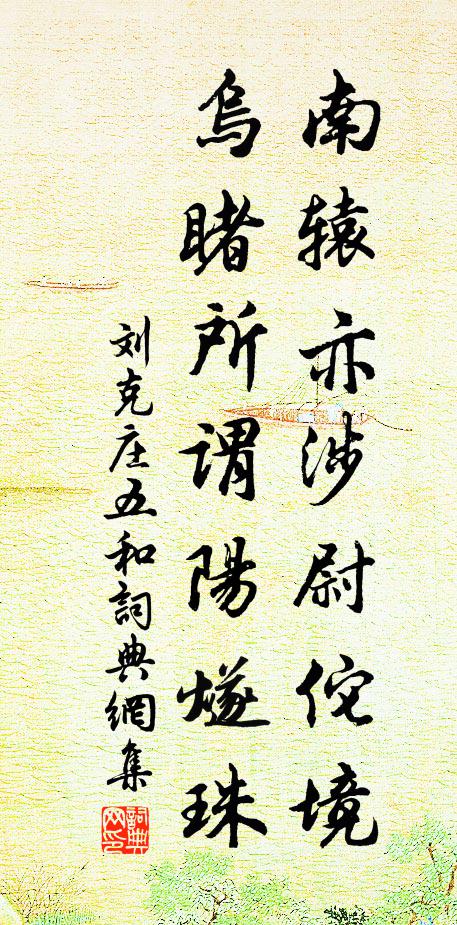 南辕亦涉尉佗境
烏睹所谓陽燧珠
刘克庄五和詞典網集
詞典网印